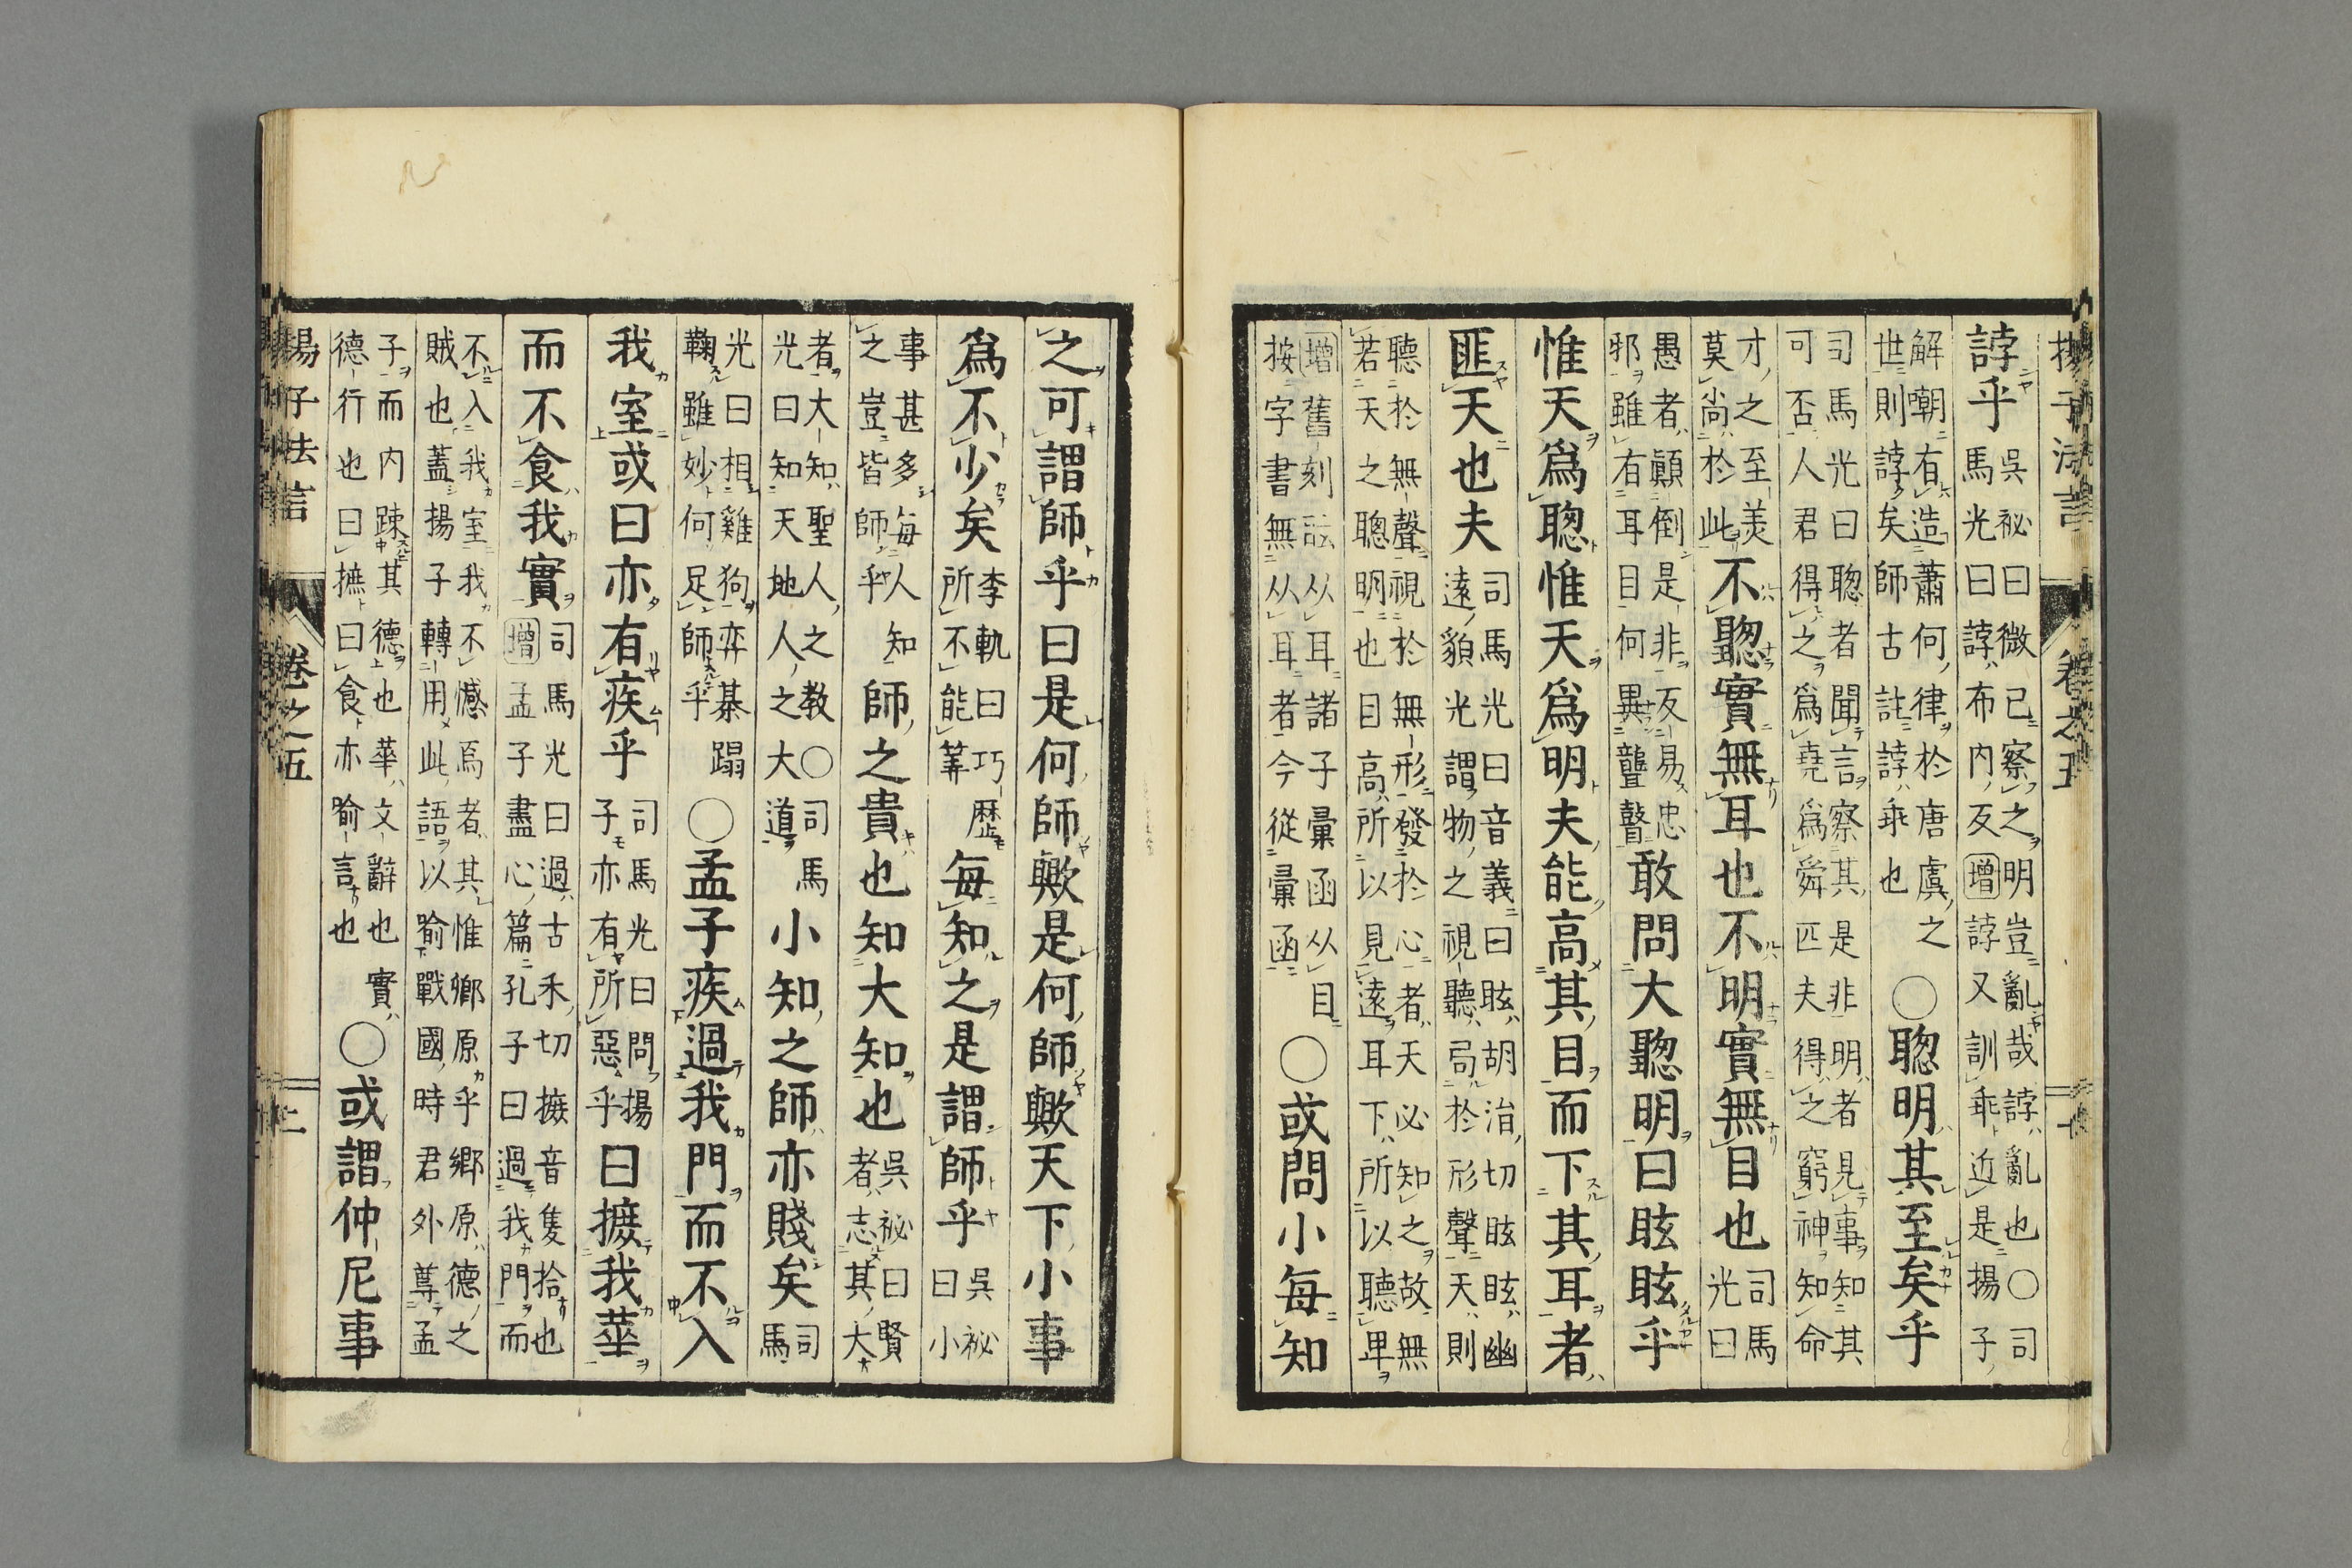 揚子法言　卷之五
誖乎吳祕曰微已察之明豈亂哉誖亂也〇司馬光曰誖布内反增誖又訓乖近是揚子
解嘲有造蕭何律於唐虞之世則誖矣師古註誖乖也〇聰明其至矣乎
司馬光曰聰者聞言察其是非明者見事知其可否人君得之爲堯爲舜匹夫得之窮神知命
才之至羙莫尚於此不聰實無耳也不明實無目也司馬光曰
愚者顚倒是非反易忠邪雖有耳目何異聾瞽敢問大聰明曰眩眩乎
惟天爲聰惟天爲明夫能高其目而下其耳者
匪天也夫司馬光曰音義曰眩胡涓切眩眩幽遠貌光謂物之視聽局於形聲天則
聽於無聲視於無形發於心者天必知之故無若天之聰明也目高所以見遠耳下所以聽卑
增舊刻从耳諸子彙函从目按字書無从耳者今從彙函〇或問小每知
之可謂師乎曰是何師歟是何師歟天下小事
爲不少矣李軌曰巧歷所不能筭每知之是謂師乎吳祕曰小
事甚多每人知之豈皆師乎師之貴也知大知也吳祕曰賢者志其大
者大知聖人之教〇司馬光曰知天地人之大道小知之師亦賤矣司馬
光曰相雞狗弈棊蹋鞠雖妙何足師乎〇孟子疾過我門而不入
我室或曰亦有疾乎司馬光曰問揚子亦有所惡乎曰摭我華
而不食我實司馬光曰過古禾切摭音隻拾也增孟子盡心篇孔子曰過我門而
不入我室我不憾焉者其惟鄉原乎鄉原德之賊也蓋揚子轉用此語以喻戰國時君外尊孟
子而内踈其德也華文辭也實德行也曰摭曰食亦喻言也〇或謂仲尼事
揚子法言　卷之五